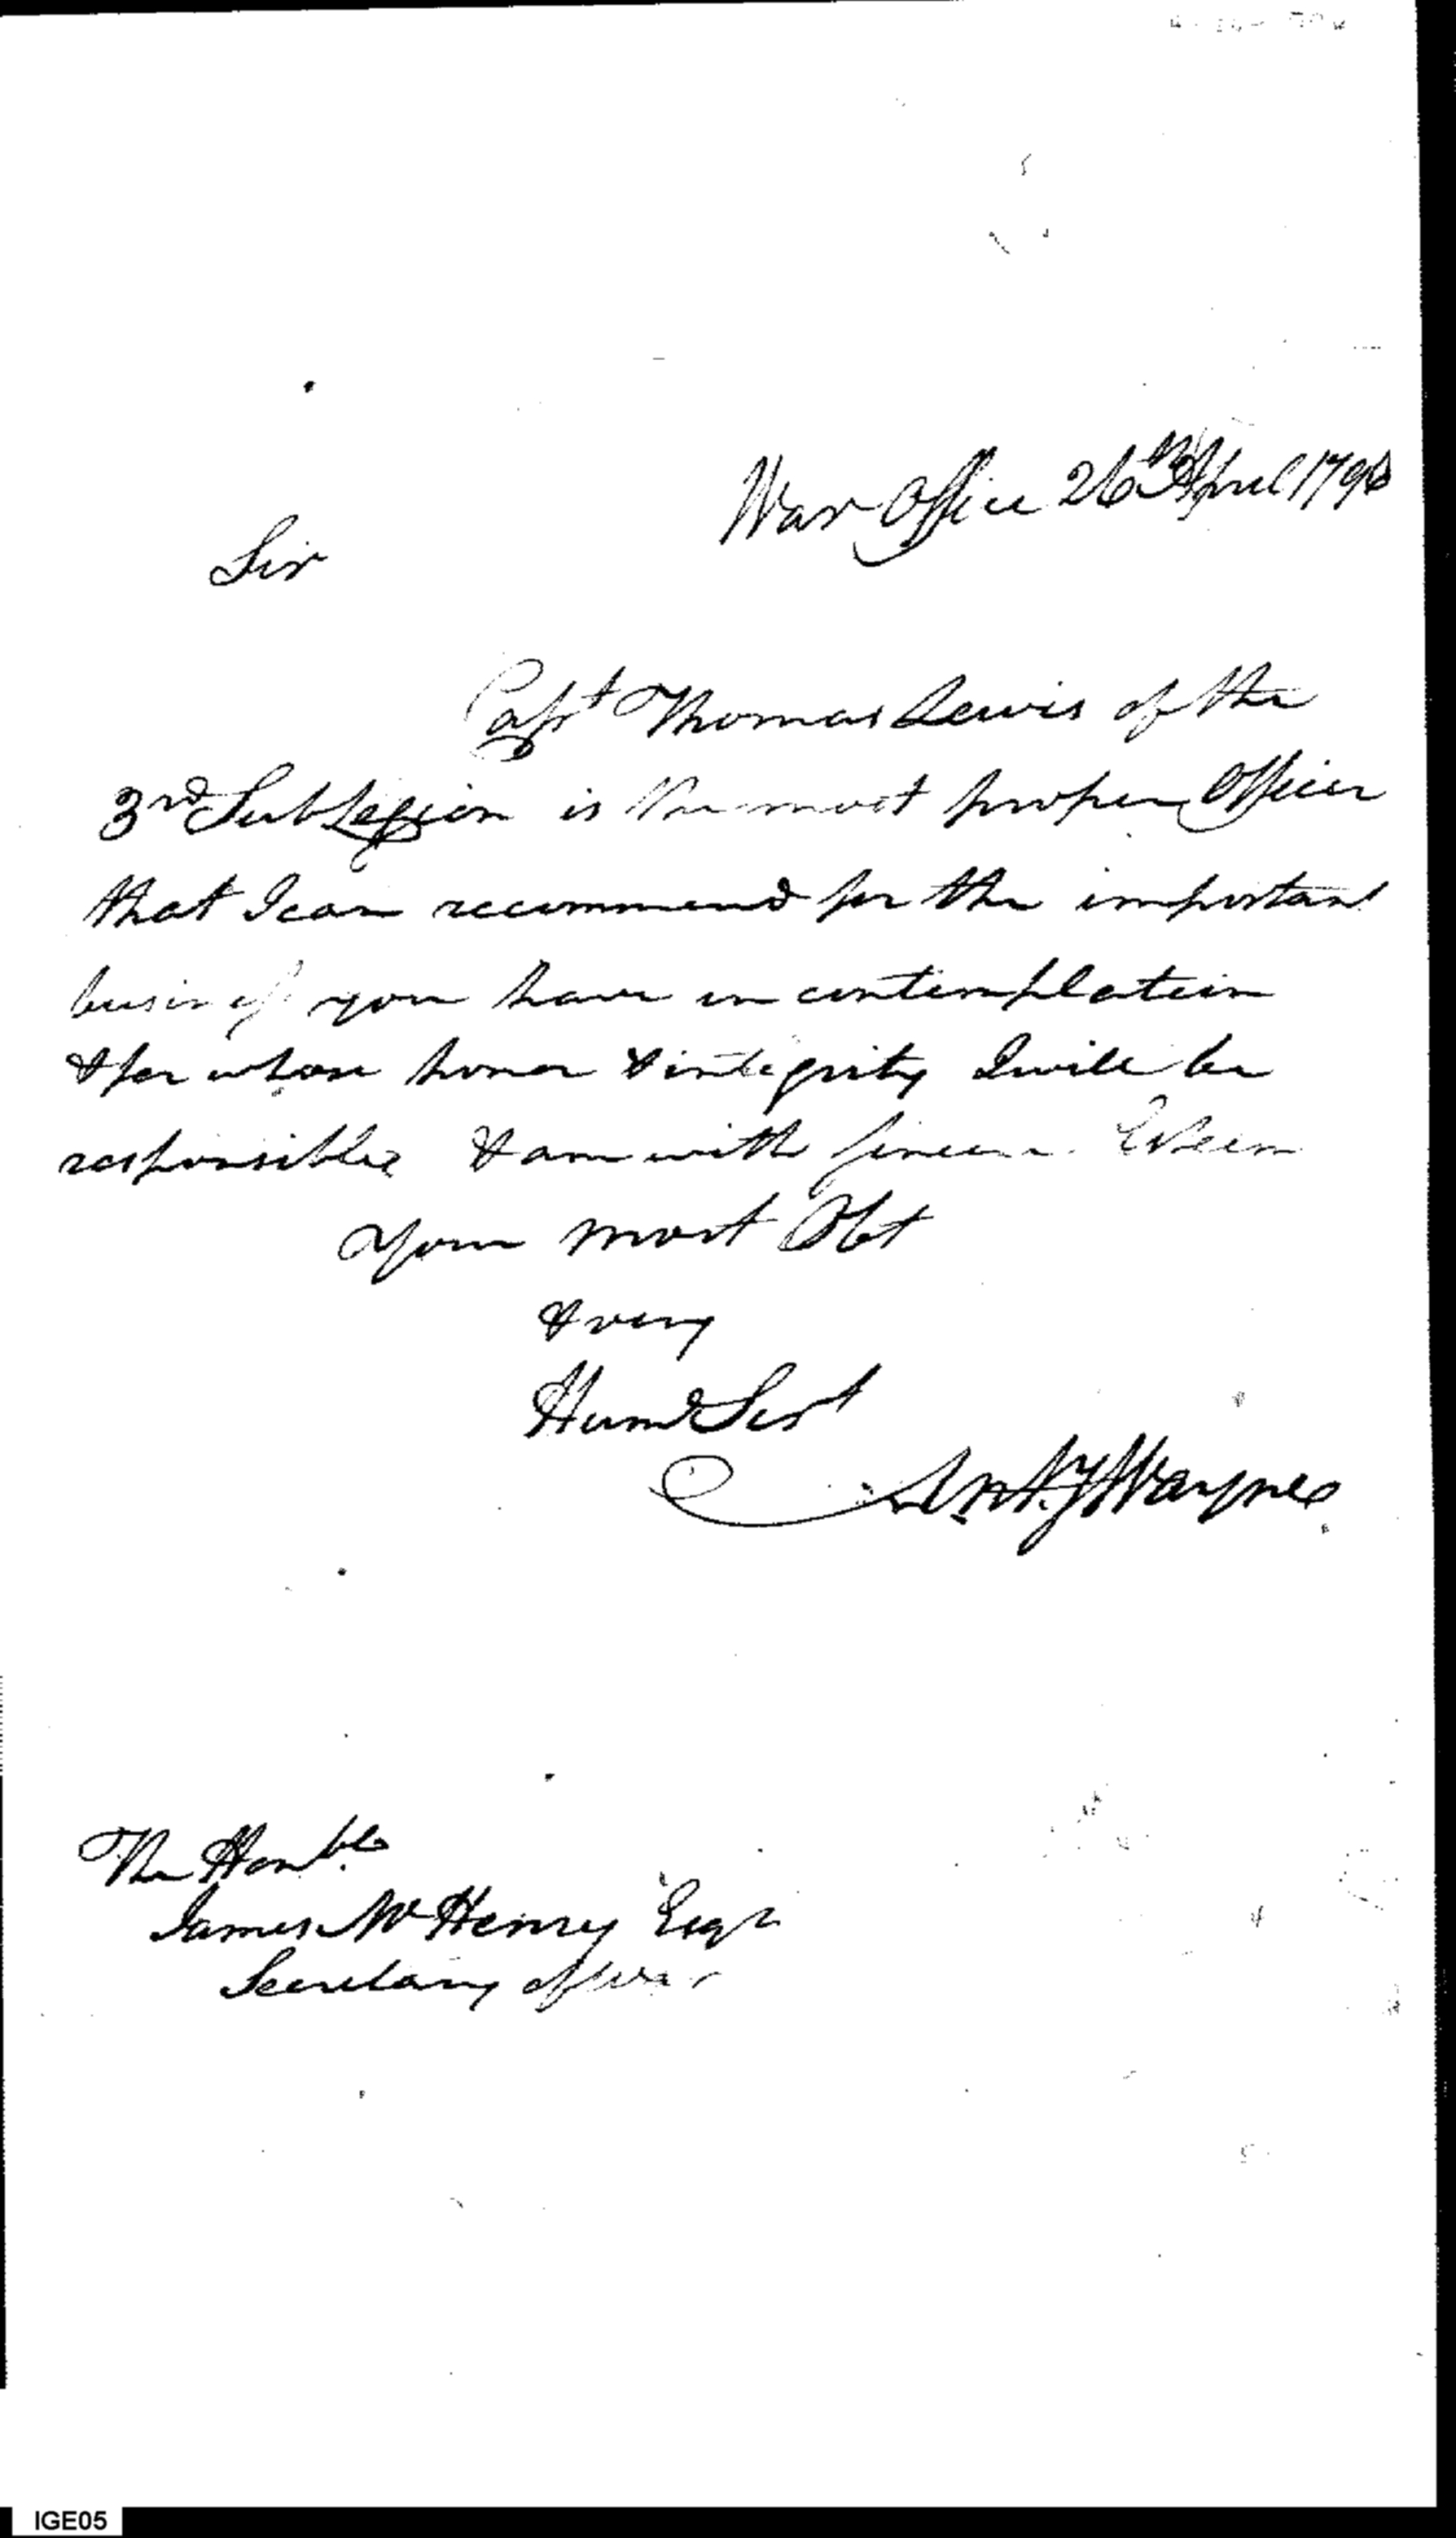 War Office 26th April 1796
Sir
Capt Thomas Lewis of the
3rd Sub Legion is the most proper Officer
that I can recommend for the important
business you have in contemplation
& for whose honor & integrity I will be
responsible & am with sincere Esteem
Your most Obt
& very
Hume Sert
Anty Wayne
The Honble
James McHenry Esqr
Secretary of War
IGE05